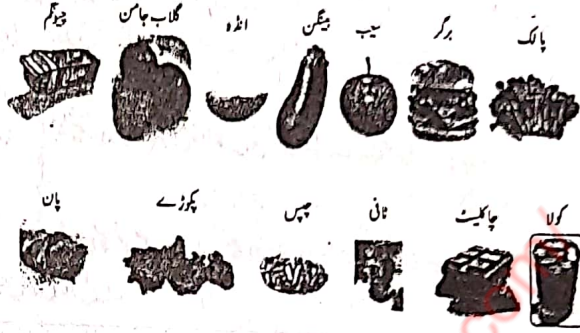 پالک برگر سیب بینگن انڈہ گلاب جامن چیونگم
کولا چاکلیٹ ٹافی چپس پکوڑے پان
com/